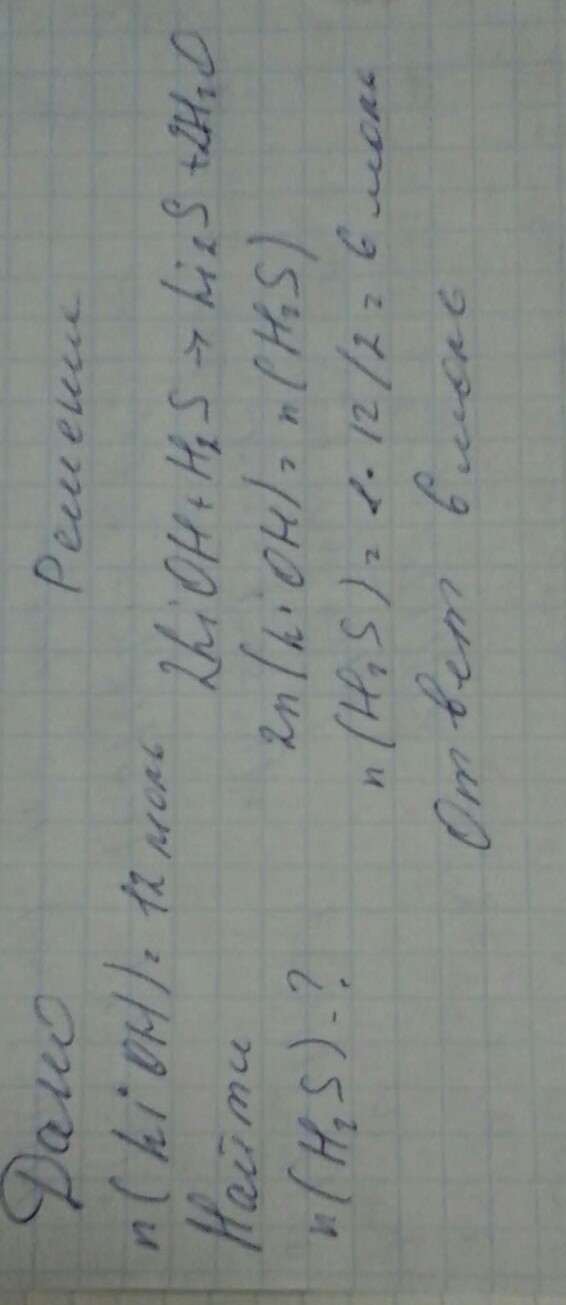 Дано
n(LiOH)=12 моль
Найти
n(H₂S)-?
Решение
2LiOH+H₂S→Li₂S+2H₂O
2n(LiOH)=n(H₂S)
n(H₂S)=1·12/2=6 моль
Ответ 6 моль